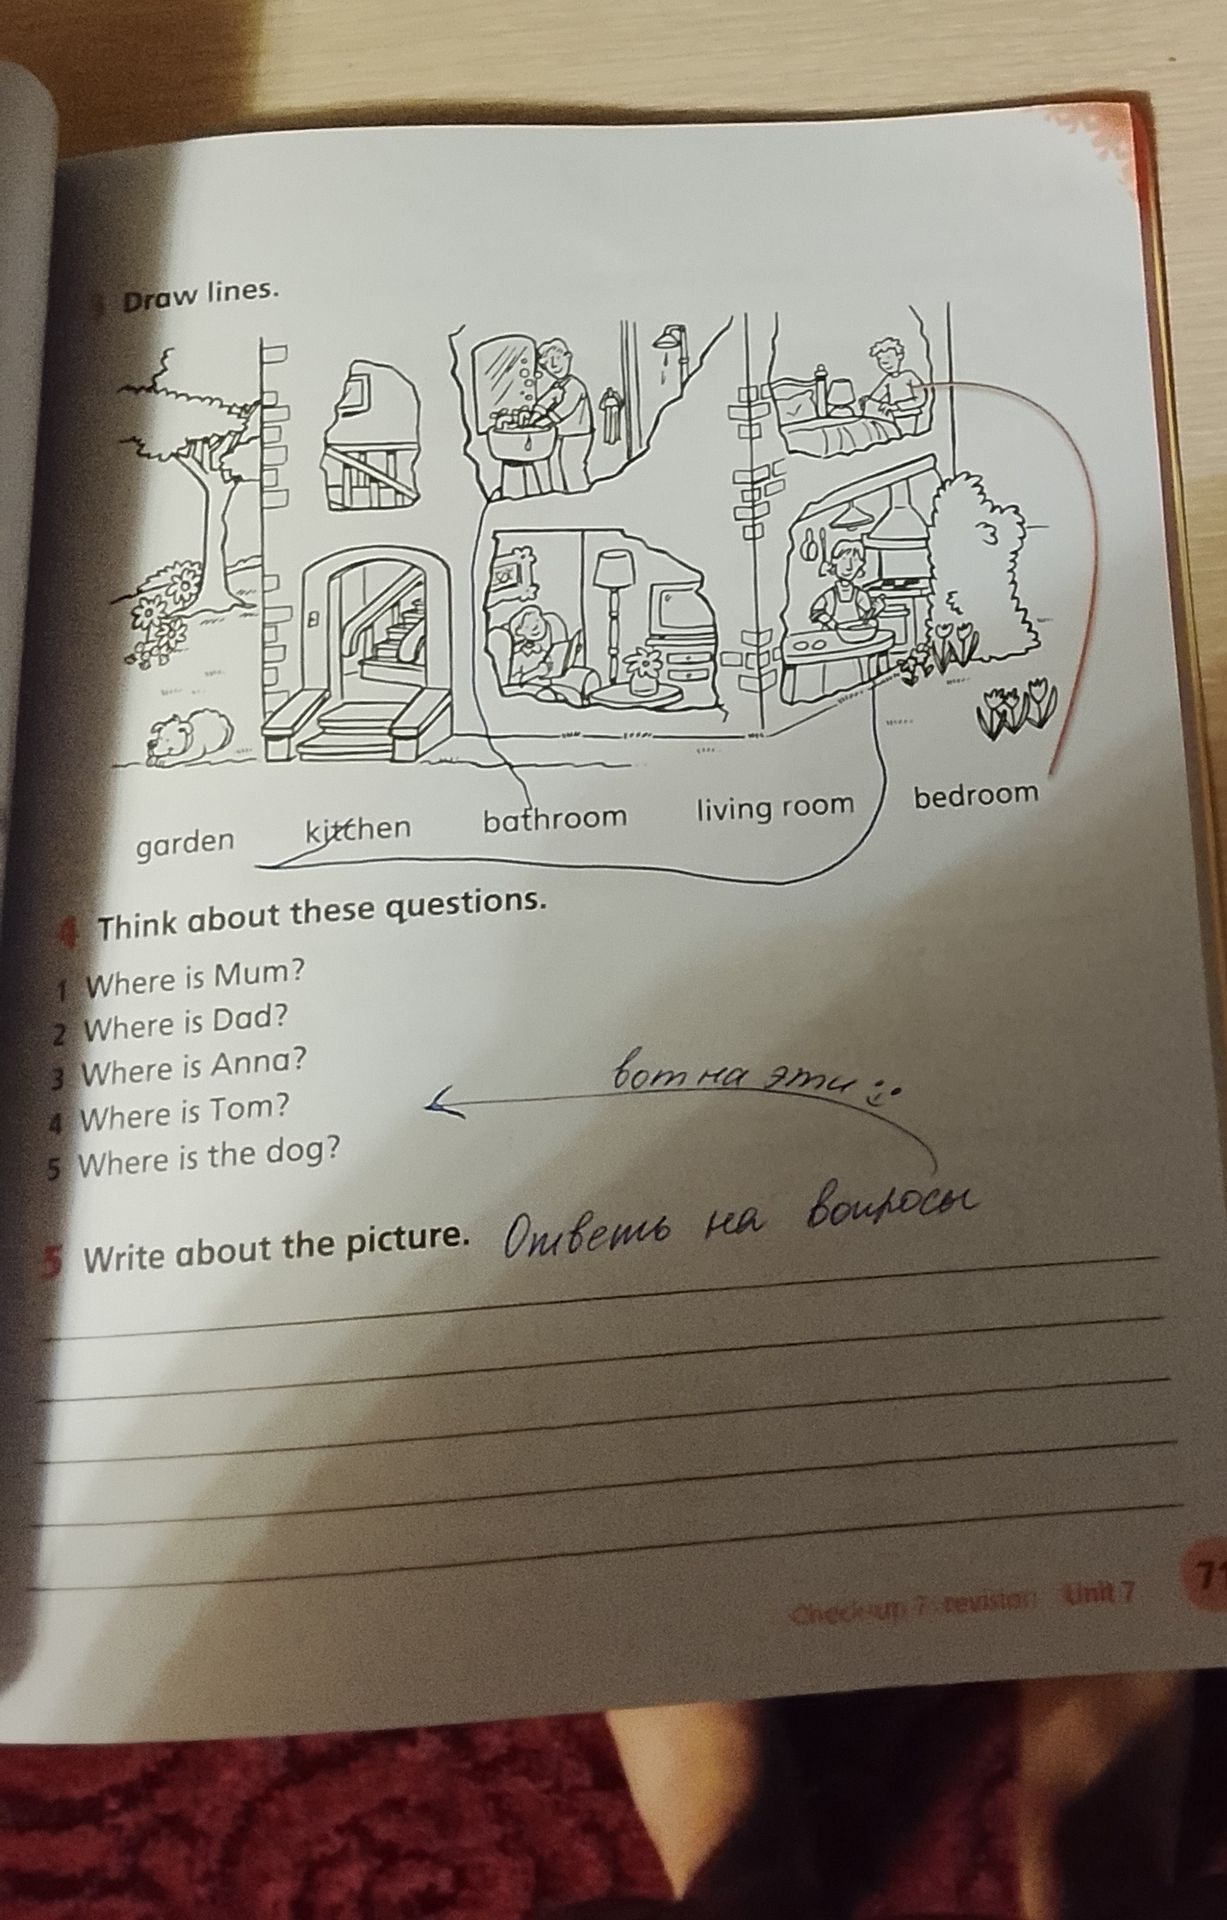 Draw lines.
garden kitchen bathroom living room bedroom
4 Think about these questions.
1 Where is Mum?
2 Where is Dad?
3 Where is Anna?
4 Where is Tom?
5 Where is the dog?
вот на эти
5 Write about the picture. Ответь на вопросы
Check-up 7: revision Unit 7
71